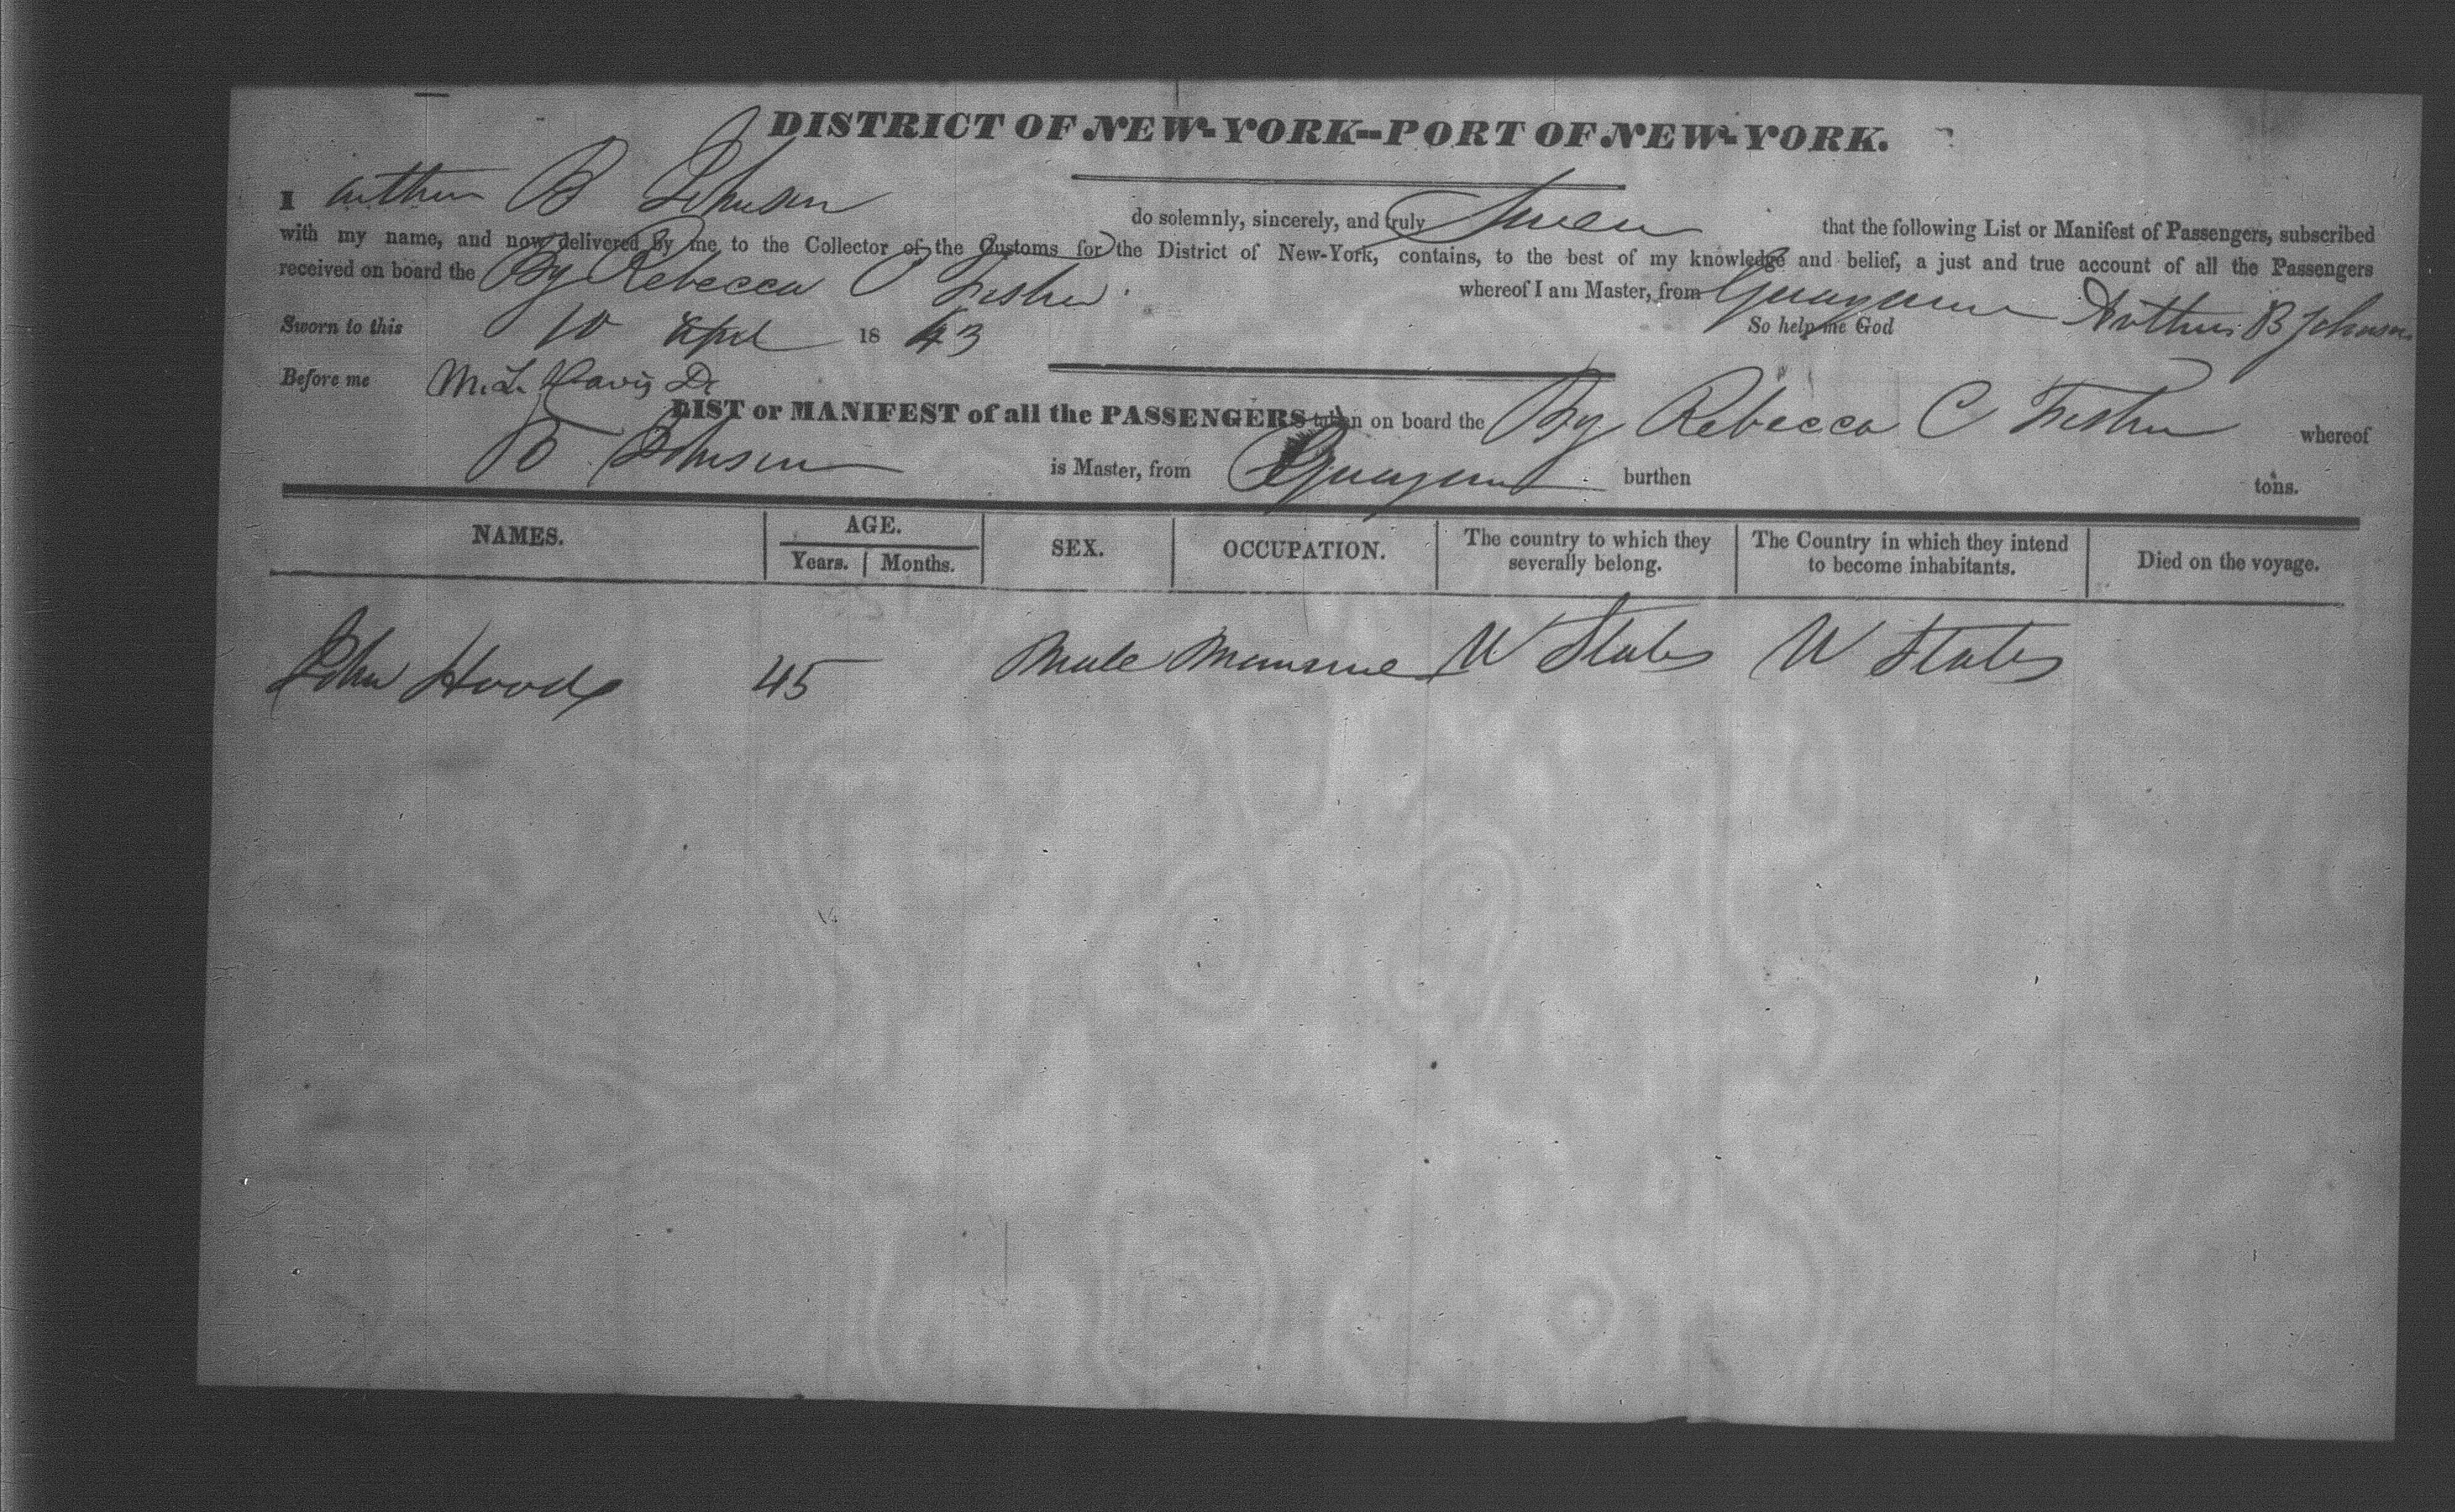 DISTRICT OF NEW-YORK--PORT OF NEW-YORK.
I Arthur B Johnson do solemnly, sincerely, and truly Swear that the following List or Manifest of Passengers, subscribed
with my name, and now delivered by me to the Collector of the Customs for the District of New-York, contains, to the best of my knowledge and belief, a just and true account of all the Passengers
received on board the Bg Rebecca C Fisher whereof I am Master, from Guayama
Sworn to this 10 April 1843 So help me God Arthur B Johnson
Before me M. L. Davis
LIST or MANIFEST of all the PASSENGERS taken on board the Bg Rebecca C Fisher whereof
Johnson is Master, from Guayama burthen tons.
NAMES. AGE. SEX. OCCUPATION. The country to which they severally belong. The Country in which they intend to become inhabitants. Died on the voyage.
Years. Months.
John Hoods 45 Male U States U States